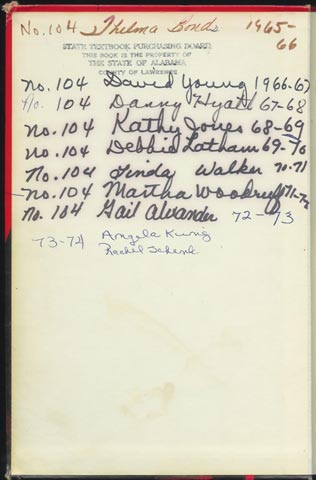 No. 104 Thelma Bonds 1965-
66
STATE TEXTBOOK PURCHASING BOARD
THIS BOOK IS THE PROPERTY OF
THE STATE OF ALABAMA
COUNTY OF LAWRENCE
No. 104 David Young 1966-67
No. 104 Danny Hyatt 67-68
No. 104 Kathy Jones 68-69
No. 104 Debbie Latham 69-70
No. 104 Linda Walker 70-71
No. 104 Martha Woodruff 71-72
No. 104 Gail Alvander 72-73
73-74 Angela King
Rachel Schenk